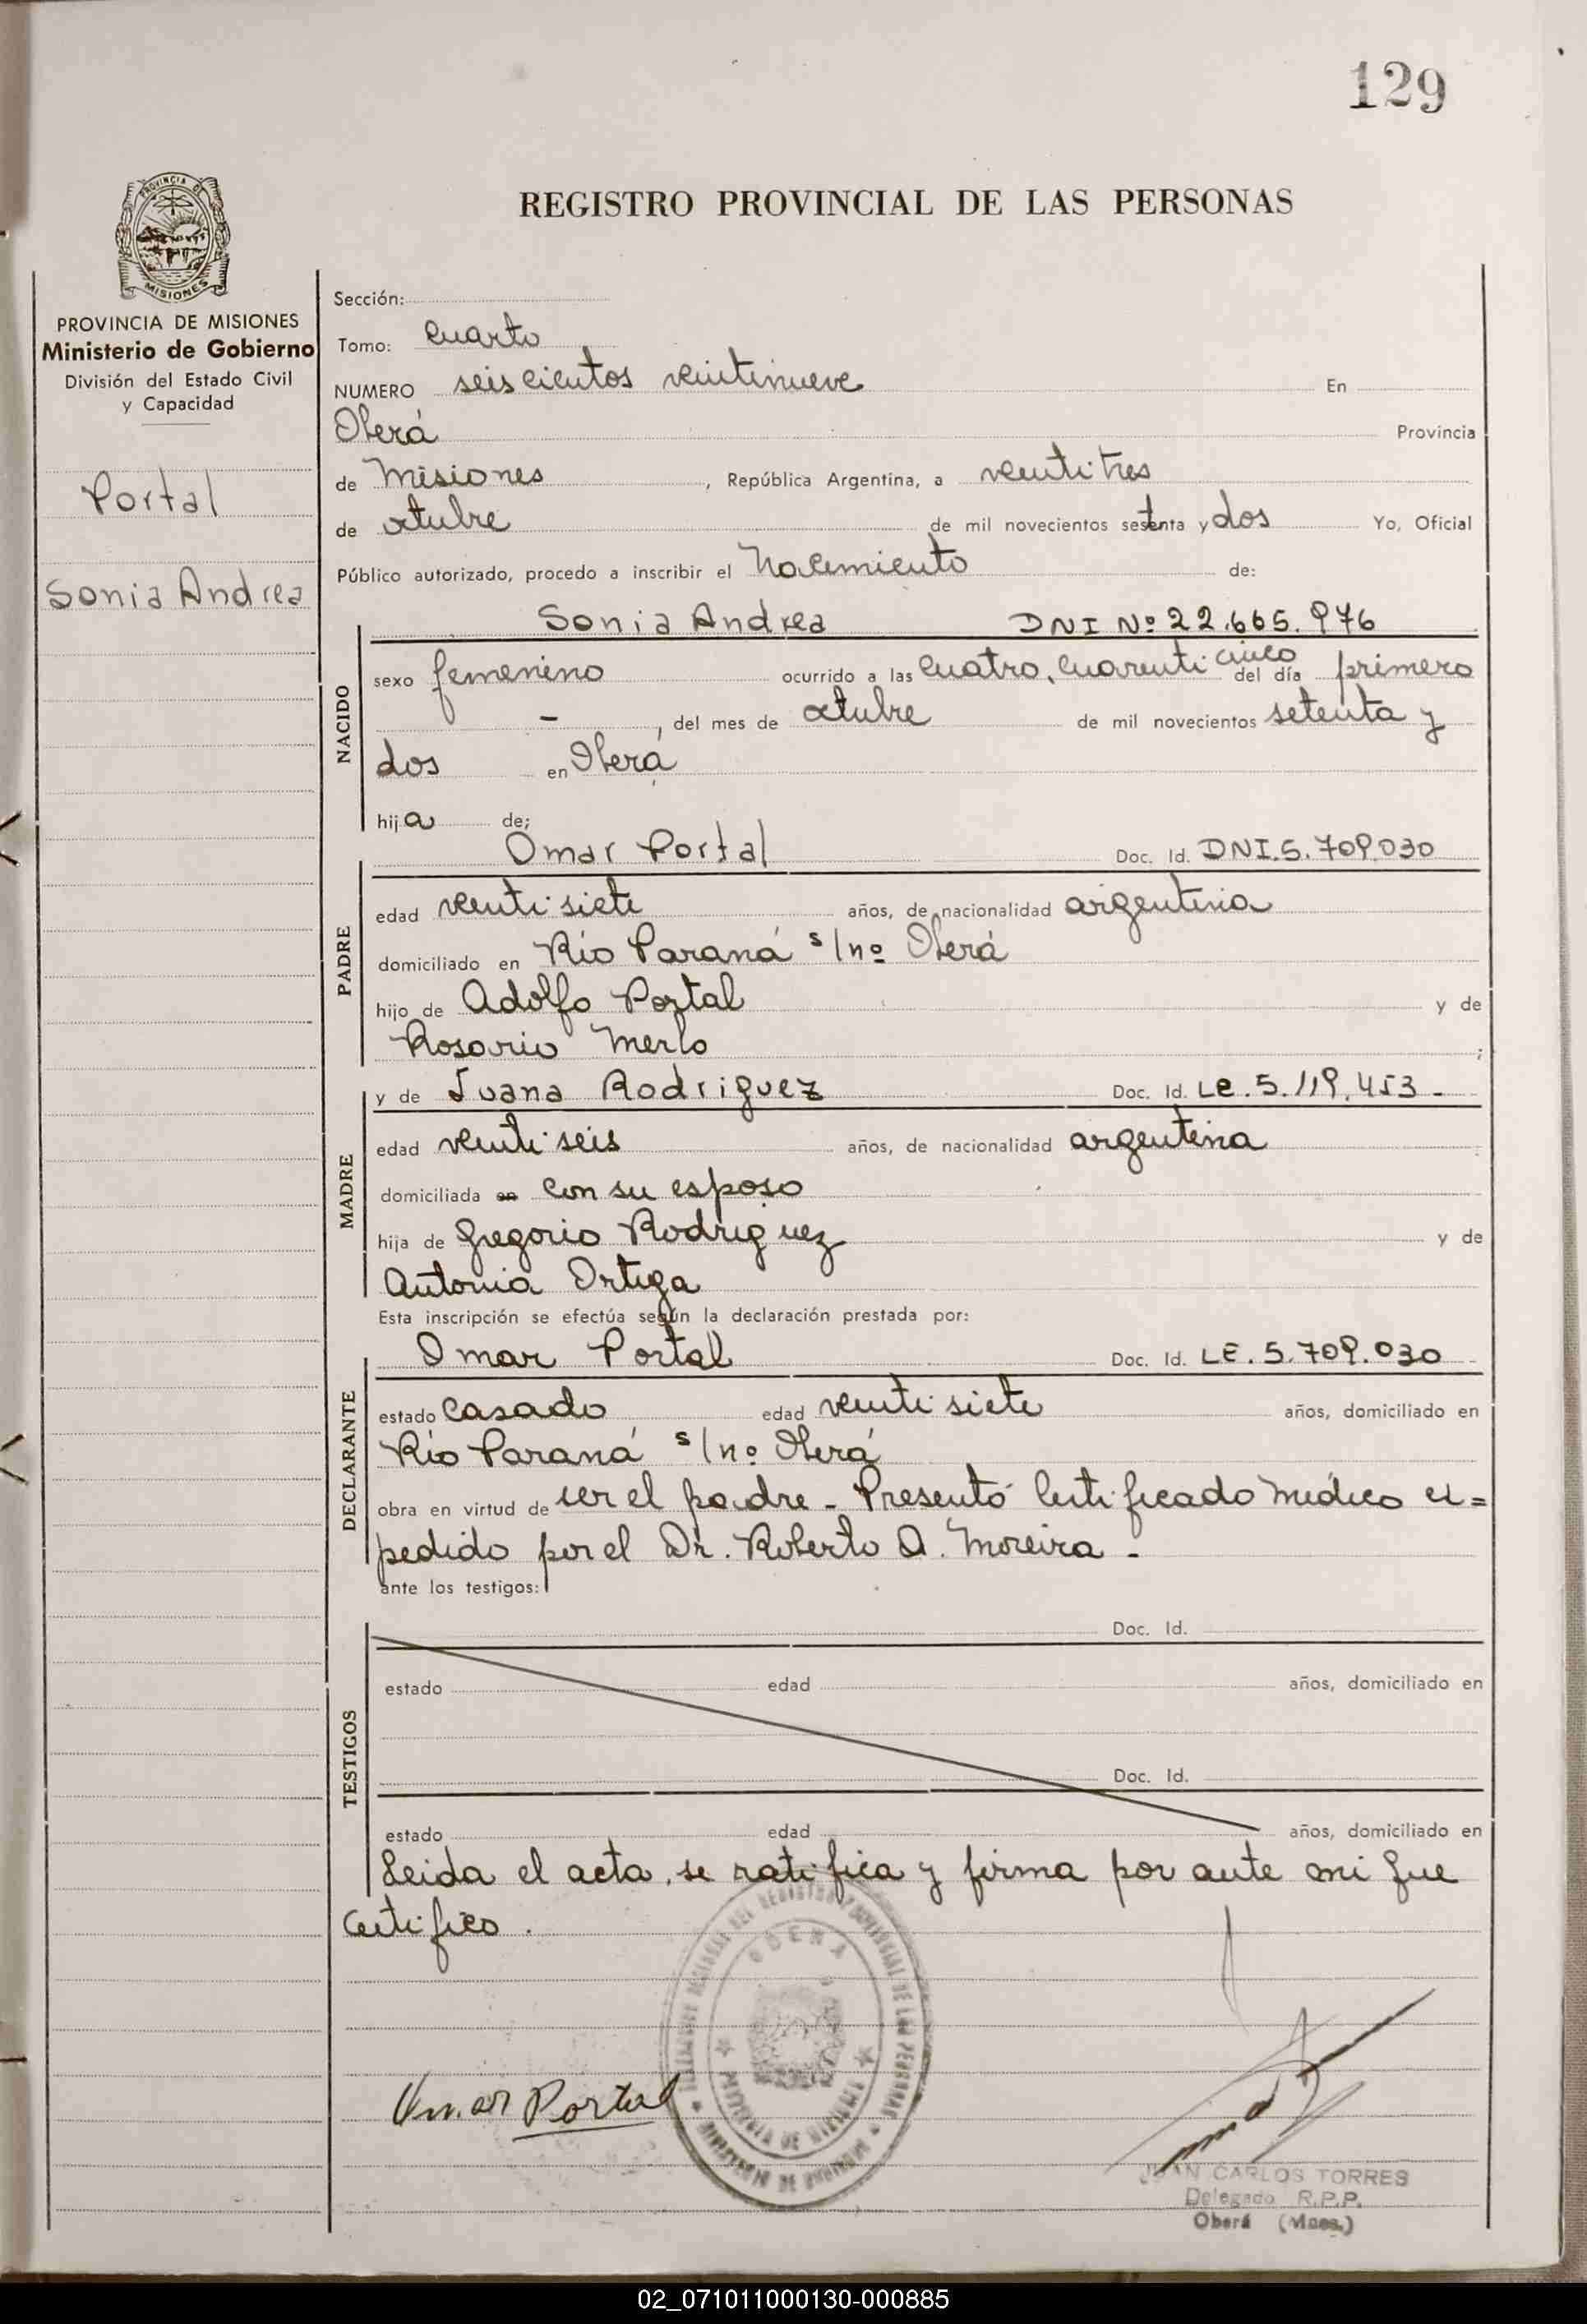 129
REGISTRO PROVINCIAL DE LAS PERSONAS
PROVINCIA DE
MISIONES
PROVINCIA DE MISIONES
Ministerio de Gobierno
División del Estado Civil
y Capacidad
Portal
Sonia Andrea
Sección:
Tomo: Cuarto
NUMERO seiscientos veintinueve En
Oberá Provincia
de Misiones, República Argentina, a veintitres
de octubre de mil novecientos setenta y dos Yo, Oficial
Público autorizado, procedo a inscribir el Nacimiento de:
Sonia Andrea DNI Nº 22.665.976
NACIDO
sexo femenino ocurrido a las Cuatro, Cuarenti cinco del día primero
-, del mes de octubre de mil novecientos setenta y
dos en Oberá
hija de;
Omar Portal Doc. Id. DNI.5.709.030
PADRE
edad veinti siete años, de nacionalidad argentina
domiciliado en Río Paraná s/nº Oberá
hijo de Adolfo Portal y de
Rosario Merlo ;
y de Juana Rodriguez Doc. Id. LC.5.119.453.-
MADRE
edad veinti seis años, de nacionalidad argentina
domiciliada en Con su esposo
hija de Gregorio Rodriguez y de
Antonia Ortega
Esta inscripción se efectúa según la declaración prestada por:
Omar Portal Doc. Id. LE.5.709.030
DECLARANTE
estado Casado edad veinti siete años, domiciliado en
Río Paraná s/nº Oberá
obra en virtud de ser el padre - Presentó Certificado médico ex=
pedido por el Dr. Roberto A. Moreira -
ante los testigos:
Doc. Id.
TESTIGOS
estado edad años, domiciliado en
Doc. Id.
estado edad años, domiciliado en
Leida el acta, se ratifica y firma por ante mi que
Certifico.
OBERA
Omar Portal
JUAN CARLOS TORRES
Delegado R.P.P.
Oberá (Mnes.)
02_071011000130-000885